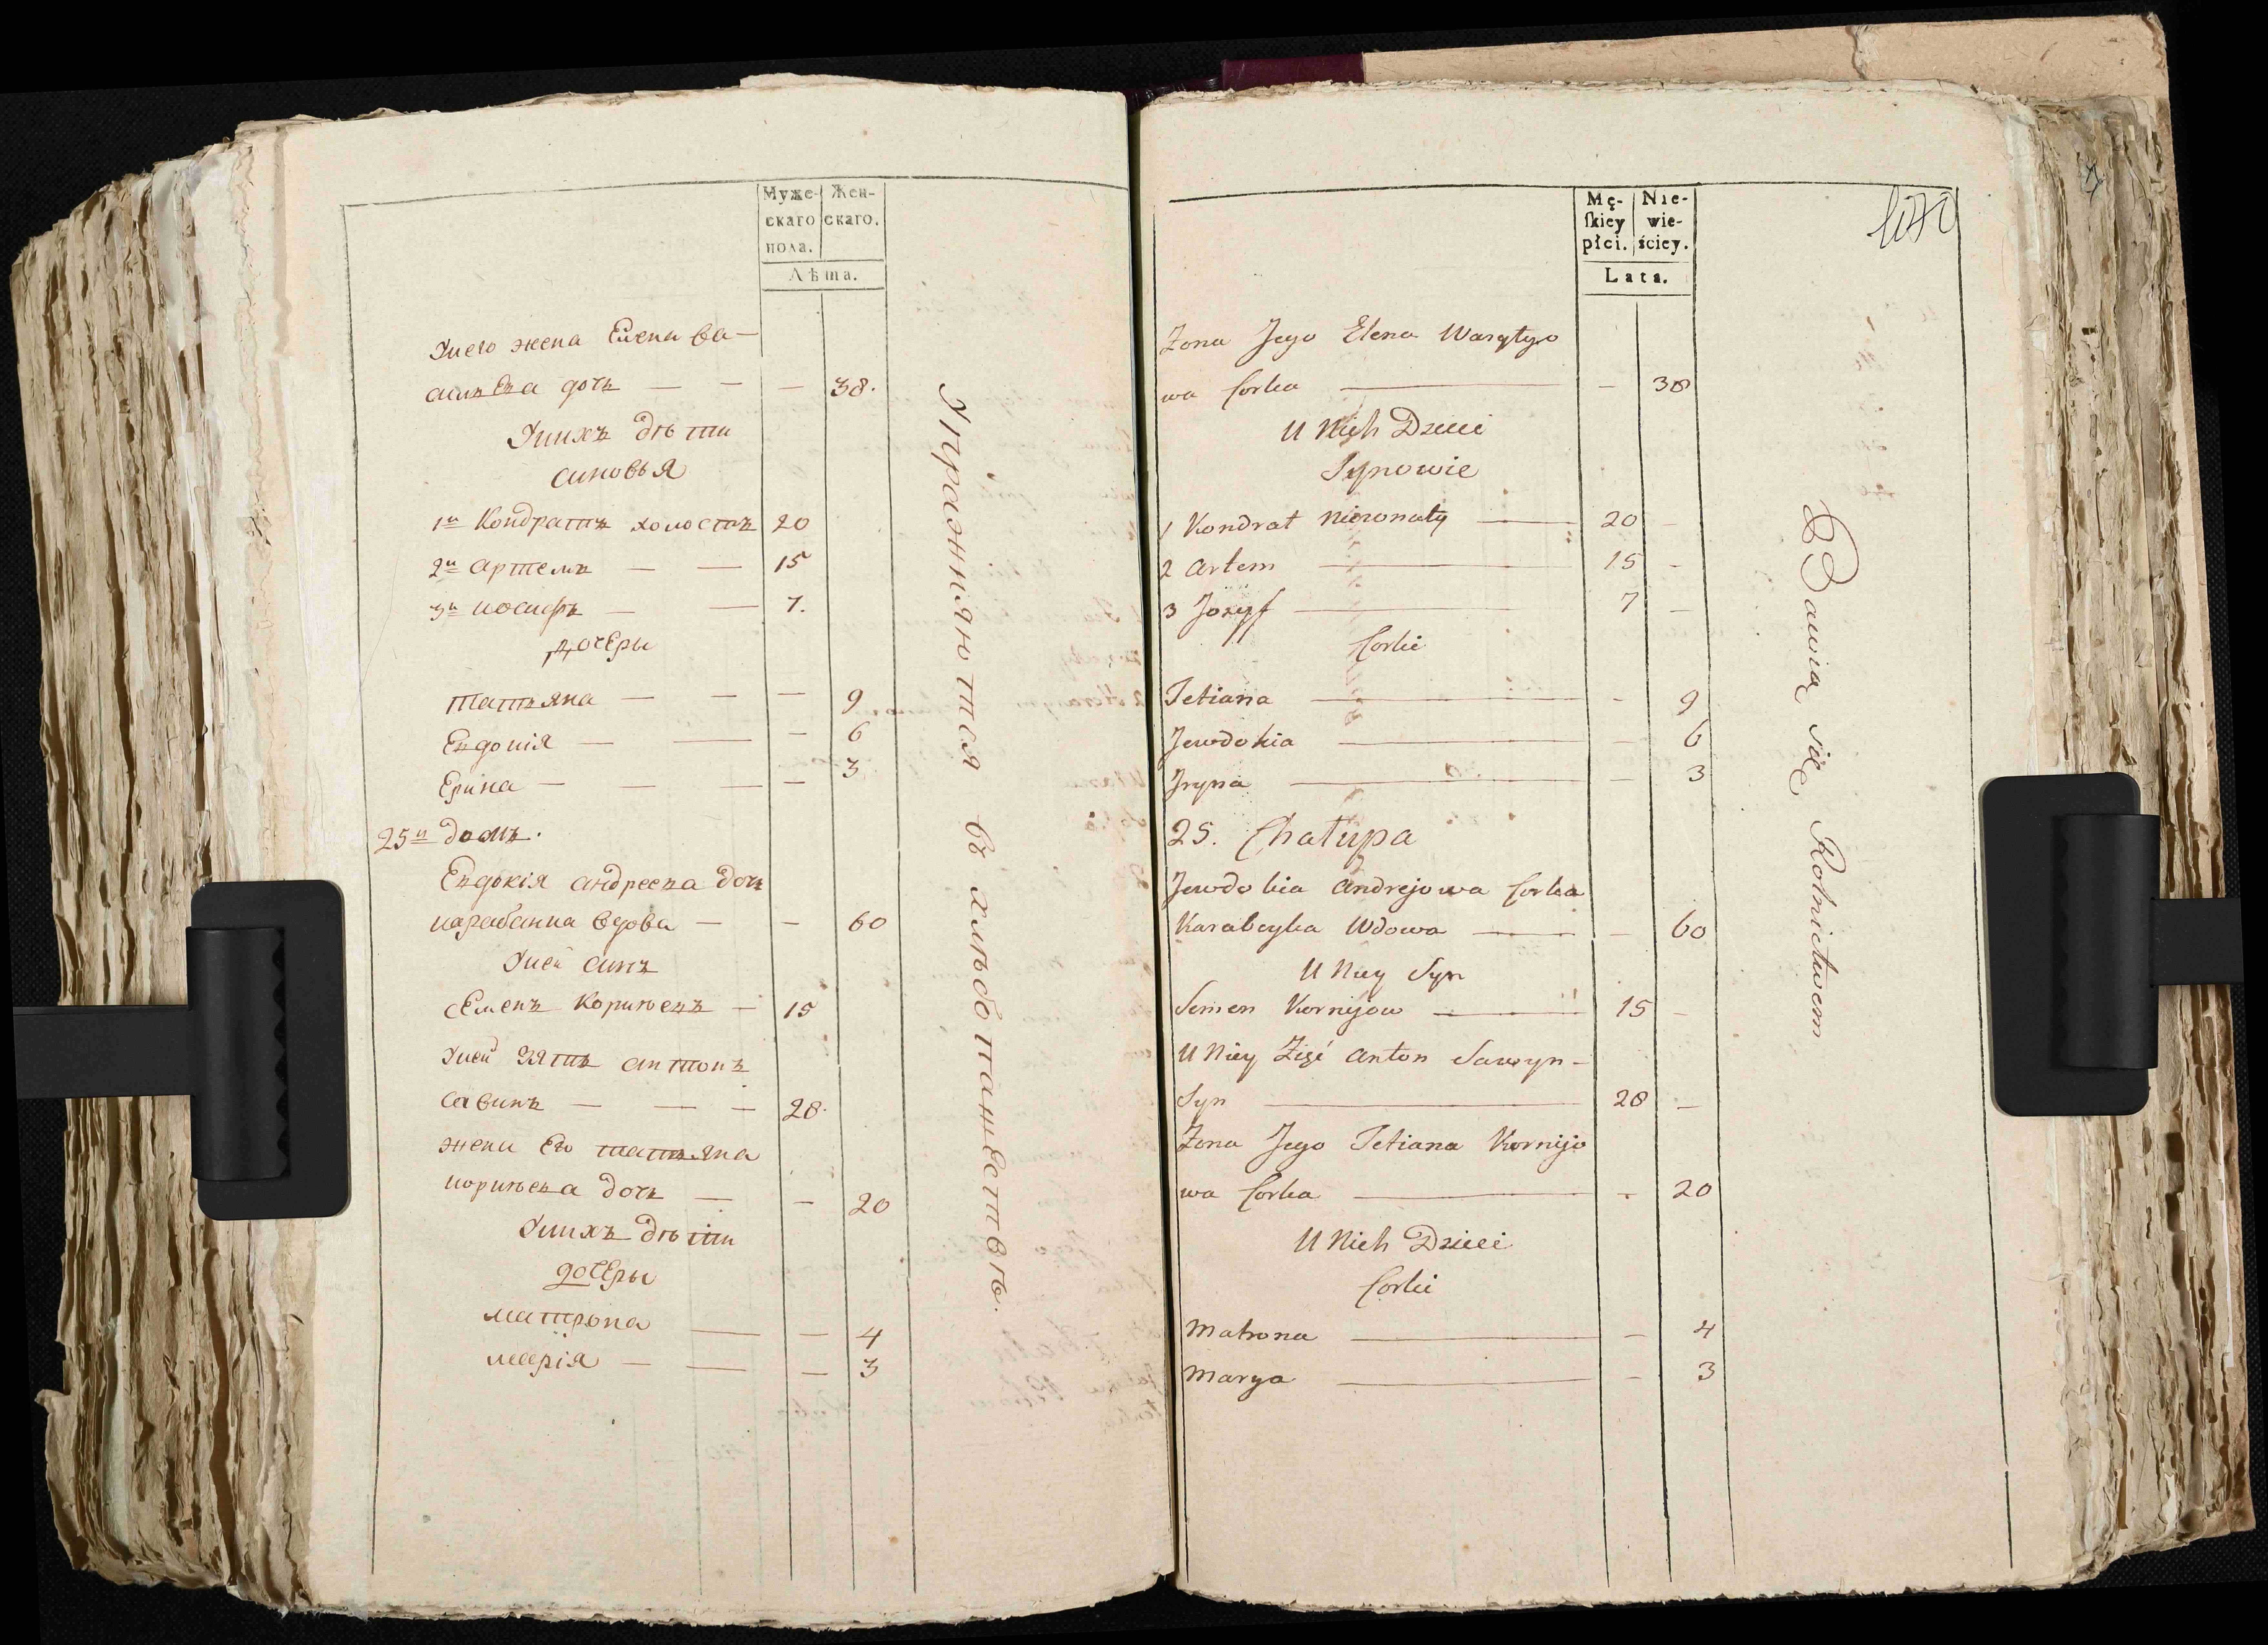 Муже-
скаго
пола.
Жен-
скаго.
Лѣта.
Унего жена Елена ва-
сильева дочь — — — 38.
Унихъ дѣти
синовья
1й Кондратъ холостъ 20
2й артемъ — — 15
3й иосифъ — — 7.
дочеры
татьяна — — — 9
Евдокія — — — 6
Ерина — — — — 3
25й домъ.
Евдокія андреева дочь
карабанка вдова — — 60
Уней синъ
Семенъ Корнѣевъ — 15
Уней зять антонъ
савинъ — — — 28.
жена Его татьяна
корнѣева дочь — — 20
Унихъ дѣти
дочеры
матрона — — 4
марія — — — 3
Упражняются въ хлѣбопашествѣ.
Mę-
skiey
płci.
Nie-
wie-
ściey.
Lata.
Zona Jego Elena Wasylyo
wa Corka — — 38
U Nich Dzieci
Synowie
1 Kondrat Niezonaty — 20 —
2 Artem — 15 —
3 Jozyf — 7 —
Corki
Tetiana — — 9
Jewdokia — — 6
Jryna — — 3
25. Chałupa
Jewdokia Andrejowa Corka
Karabcyka Wdowa — — 60
U Niey Syn
Semen Kornijow — 15 —
U Niey Zięć Anton Sawyn-
Syn — 28 —
Zona Jego Tetiana Kornijo
wa Corka — — 20
U Nich Dzieci
Corki
Matrona — — 4
Marya — — 3
Bawią się Rolnictwem